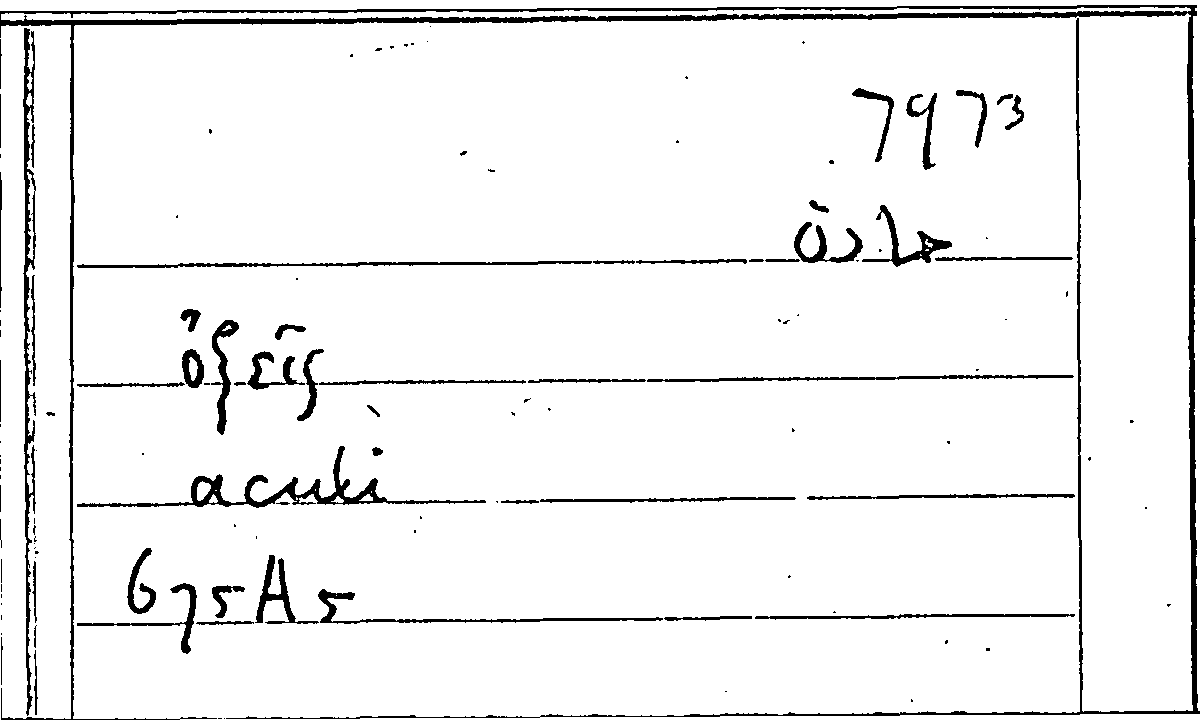 7973
حادة
ὀξεῖς
acuti
675A5